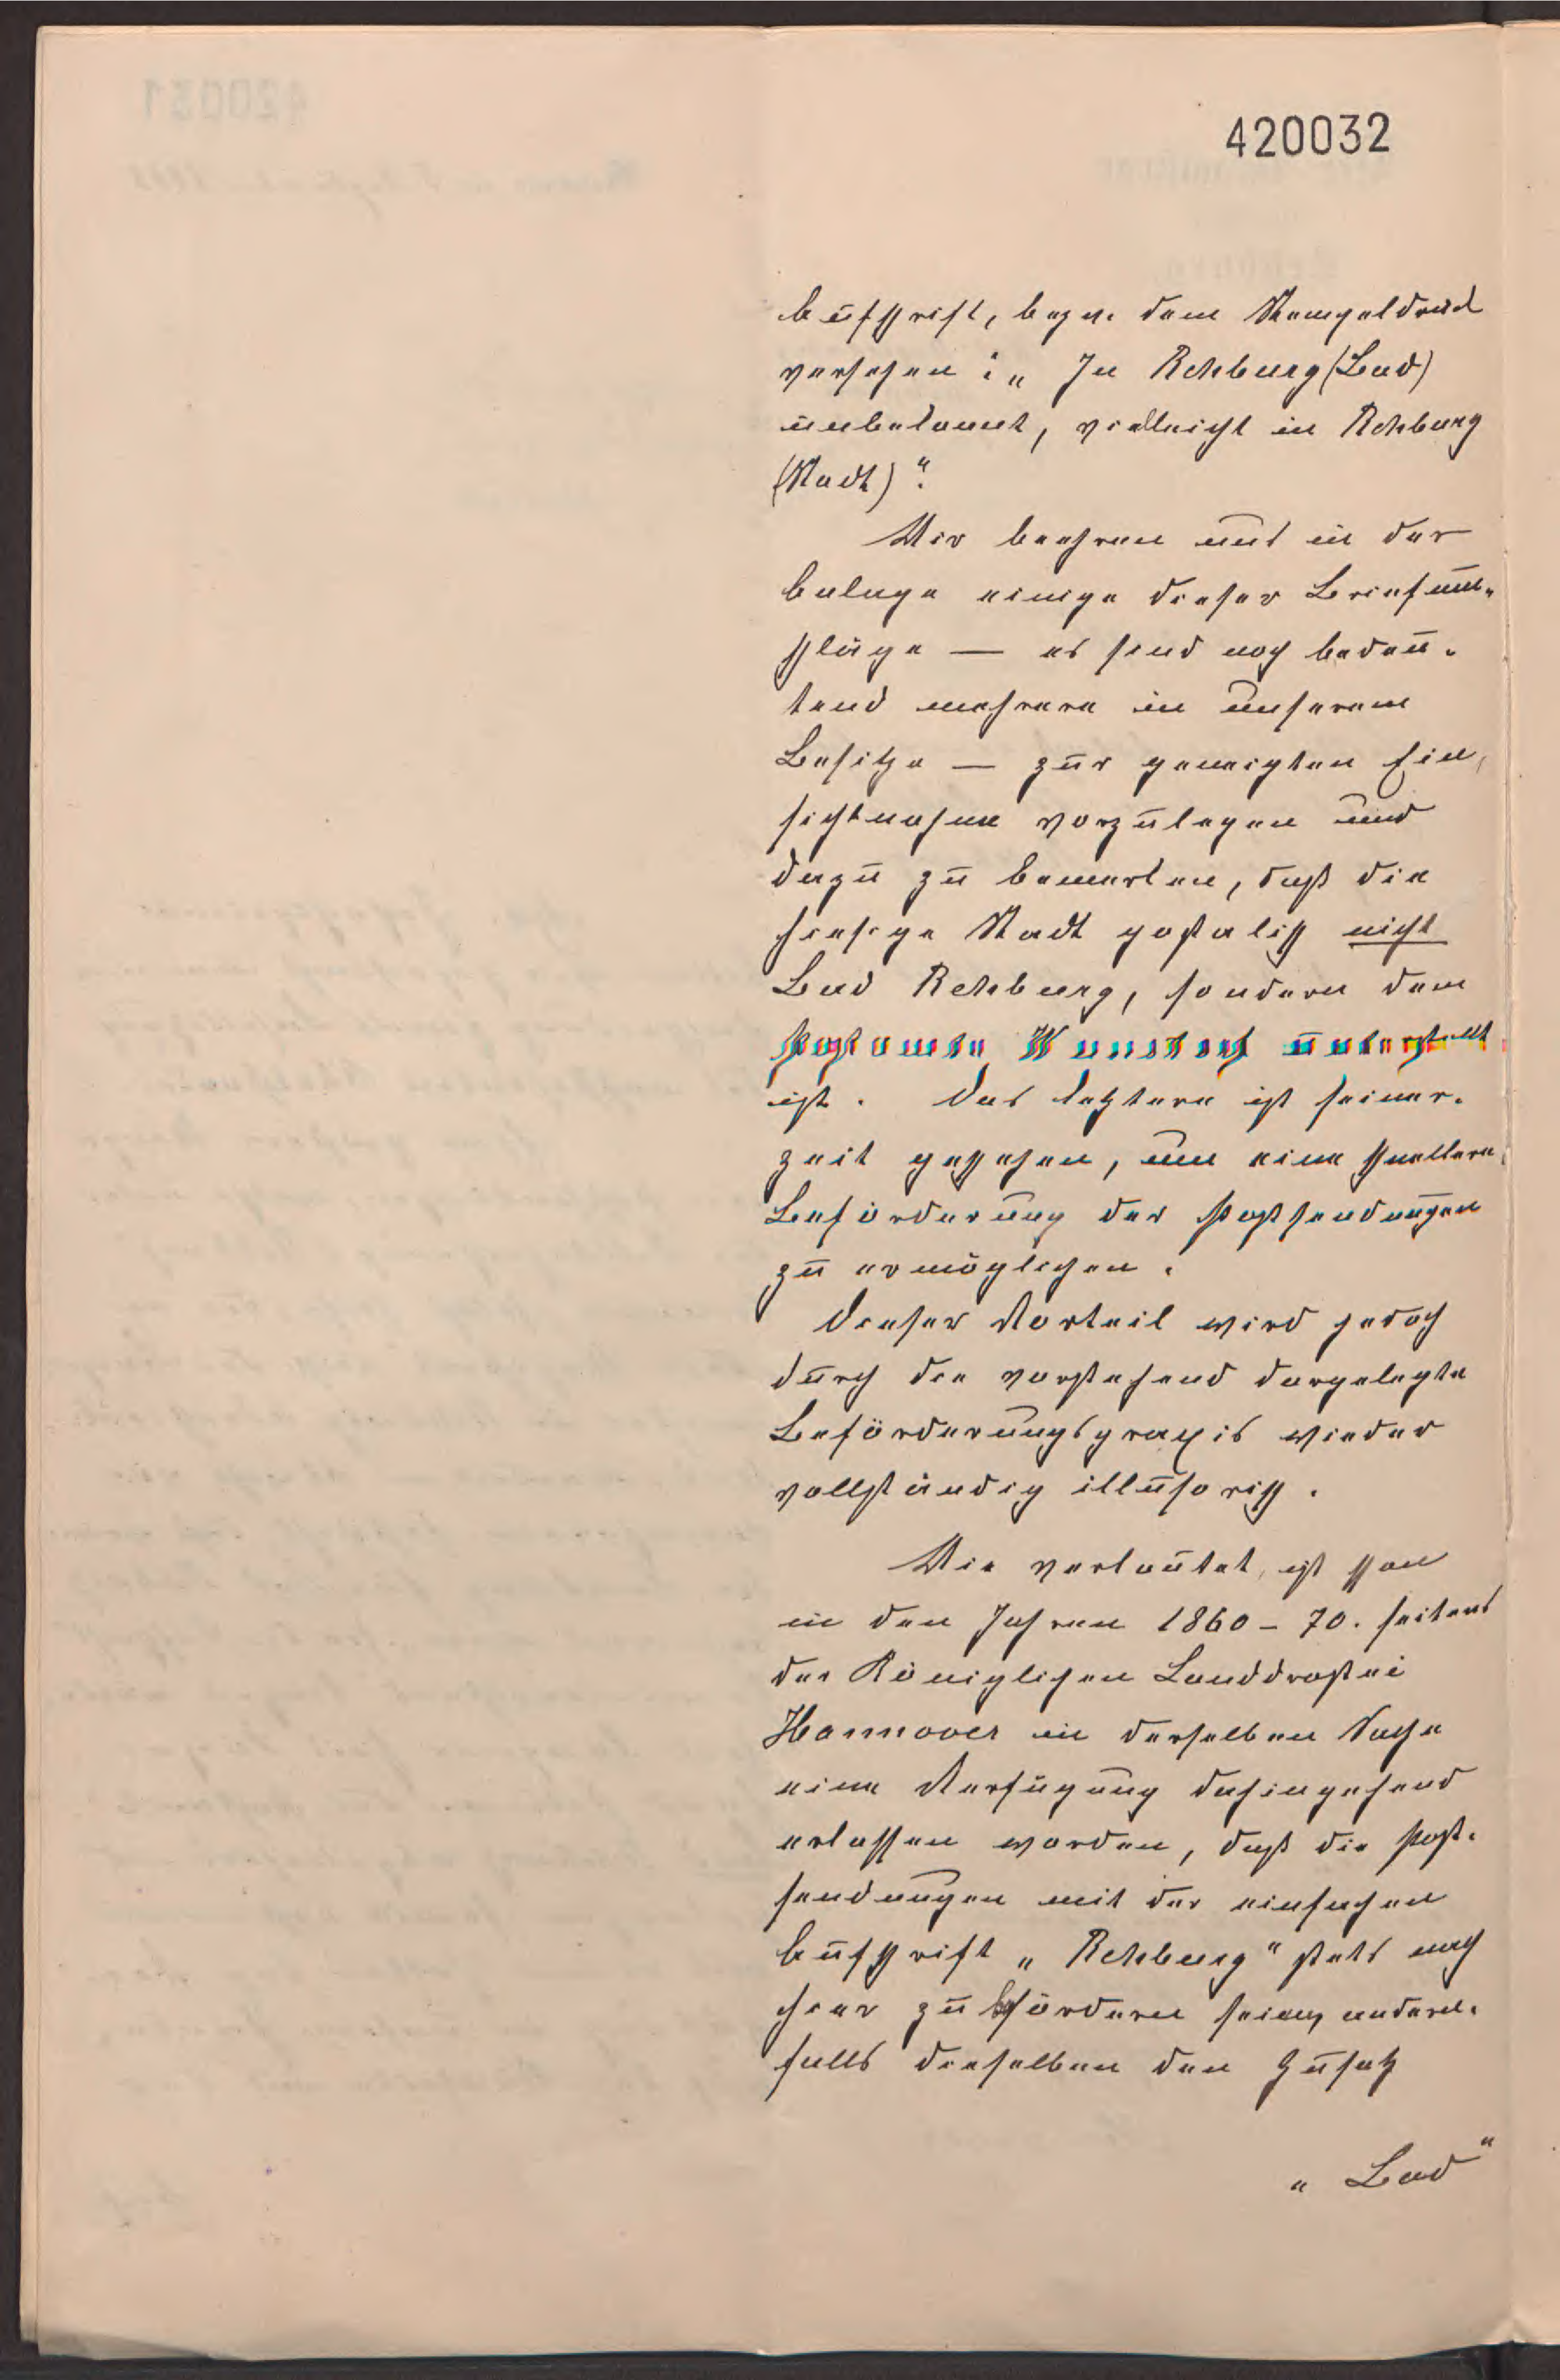 420032
Aufschrift, bezw. dem Stempeldruck
versehen: „In Rehburg (Bad)
unbekannt, vielleicht in Rehburg
(Stadt)“.
Wir beehren uns in der
Anlage einige dieser Briefum-
schläge — es sind noch bedeu-
tend mehrere in unserem
Besitze — zur geneigten Ein-
sichtnahme vorzulegen und
dazu zu bemerken, daß die
hiesige Stadt postalisch nicht
Bad Rehburg, sondern dem
Postamte Wunstorf unterstellt
ist. Das letztere ist seiner-
zeit geschehen, um eine schnellere
Beförderung der Postsendungen
zu ermöglichen.
Dieser Vorteil wird jedoch
durch die vorstehend dargelegte
Beförderungspraxis wieder
vollständig illusorisch.
Wie verlautet, ist schon
in den Jahren 1860 - 70. seitens
der Königlichen Landdrostei
Hannover in derselben Sache
eine Verfügung dahingehend
erlassen worden, daß die Post-
sendungen mit der einfachen
Aufschrift „Rehburg“ stets nach
hier zu befördern seien, andern-
falls dieselben den Zusatz
„Bad“